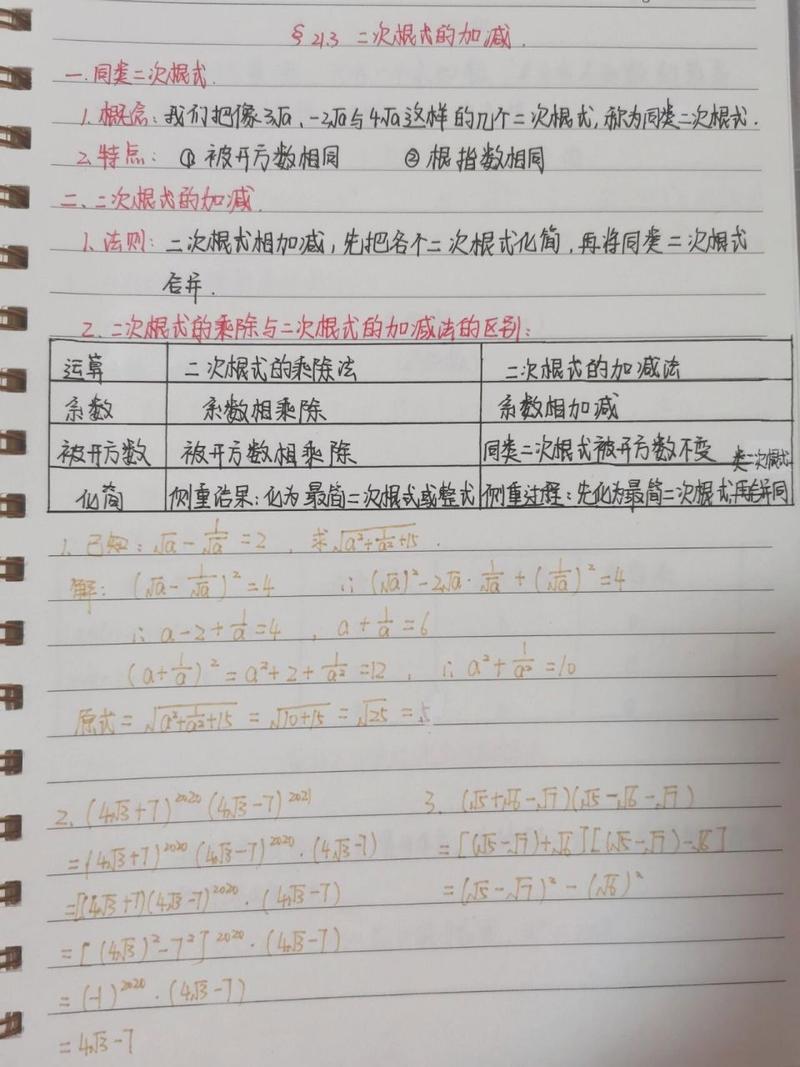 § 21.3 二次根式的加减.
一.同类二次根式.
1.概念:我们把像3√a、-2√a与4√a这样的几个二次根式,称为同类二次根式.
2.特点: ①被开方数相同 ②根指数相同
二、二次根式的加减.
1.法则:二次根式相加减,先把各个二次根式化简,再将同类二次根式
合并.
2.二次根式的乘除与二次根式的加减法的区别:
运算 二次根式的乘除法 二次根式的加减法
系数 系数相乘除 系数相加减
被开方数 被开方数相乘除 同类二次根式被开方数不变
化简 侧重结果:化为最简二次根式或整式 侧重过程:先化为最简二次根式,再合并同类二次根式
1.已知:√a-1/√a=2,求√(a²+1/a²+15).
解:(√a-1/√a)²=4 ∴(√a)²-2√a·1/√a+(1/√a)²=4
∴a-2+1/a=4,a+1/a=6
(a+1/a)²=a²+2+1/a²=12,∴a²+1/a²=10
原式=√(a²+1/a²+15)=√(10+15)=√25=5
2.(4√3+7)²⁰²⁰(4√3-7)²⁰²¹
=(4√3+7)²⁰²⁰(4√3-7)²⁰²⁰·(4√3-7)
=[(4√3+7)(4√3-7)²⁰²⁰·(4√3-7)
=[(4√3)²-7²]²⁰²⁰·(4√3-7)
=(-1)²⁰²⁰·(4√3-7)
=4√3-7
3.(√5+√6-√7)(√5-√6-√7)
=[(√5-√7)+√6][(√5-√7)-√6]
=(√5-√7)²-(√6)²